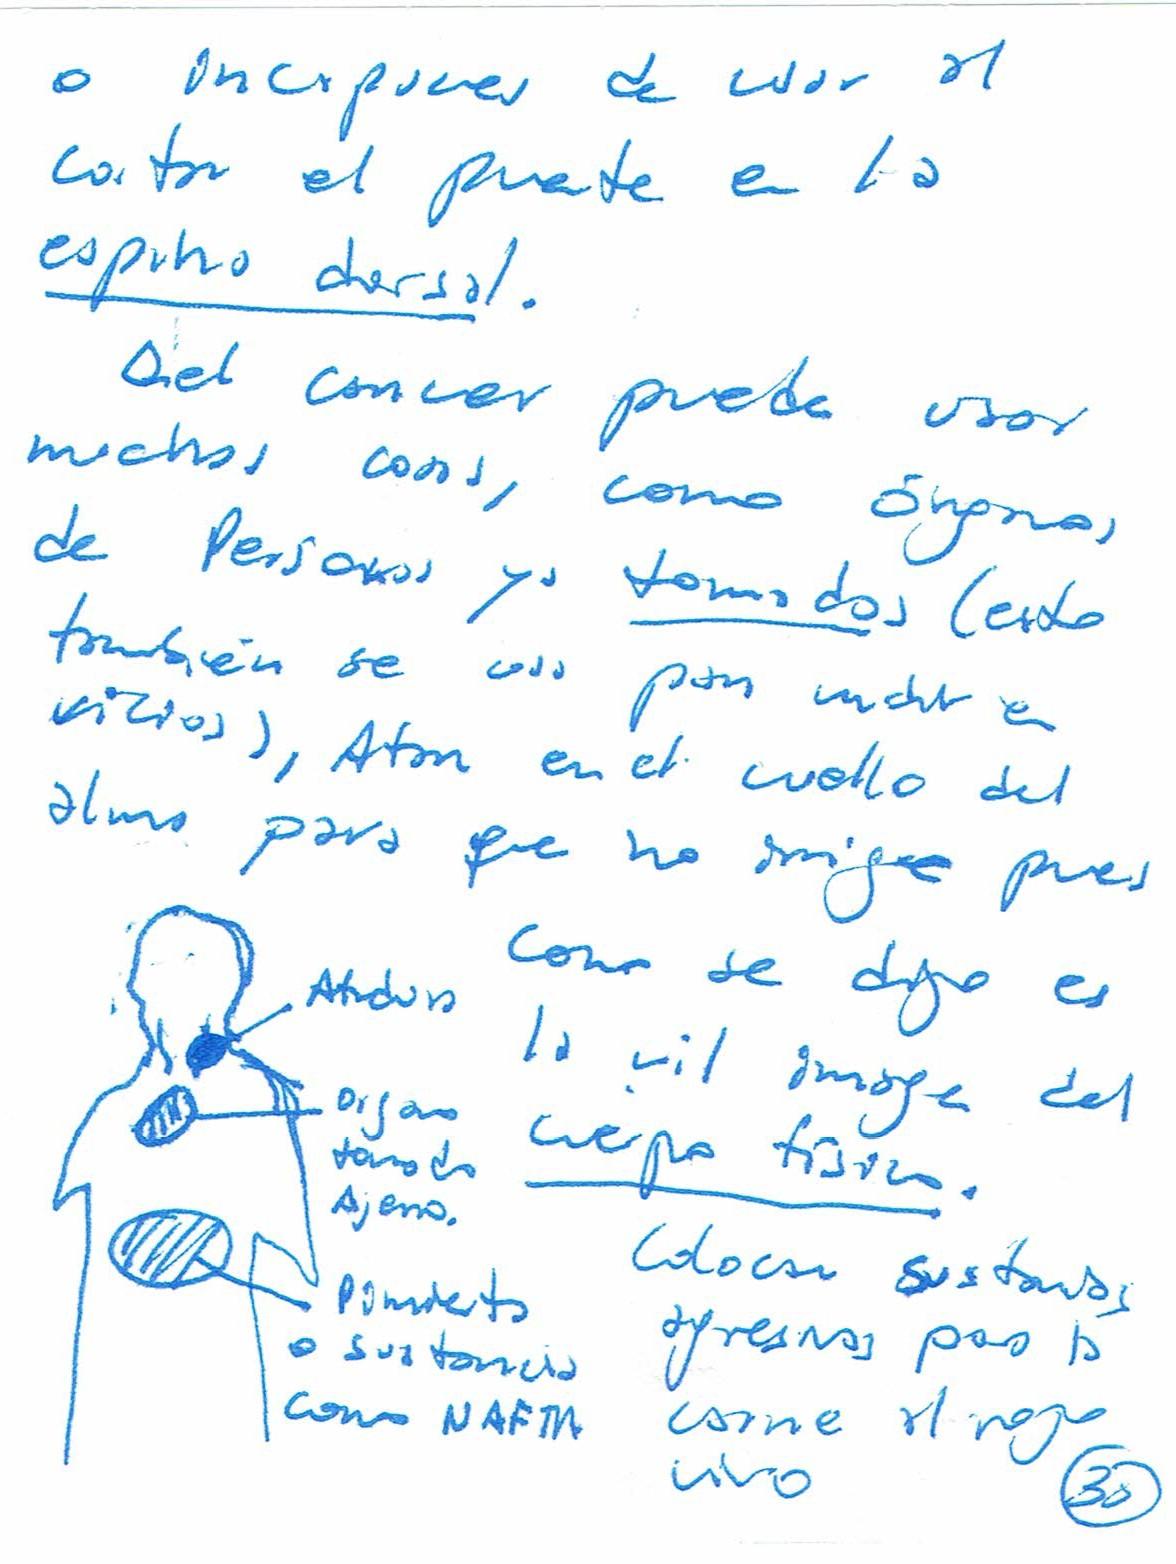 o incapaces de usar al
cortar el puente en la
espina dorsal.
Del cancer puede usar
muchas cosas, como órganos
de Personas ya tomados (esto
también se usa para meter en
vicios), Atan en el cuello del
alma para que no migre pues
como se dijo es
la vil image del
cuerpo físico.
Atadura
Organo
tomado
Ajeno.
Pimienta
o sustancia
como NAFTA
Colocan sustancias
agresivas para la
carne al rojo
vivo
30